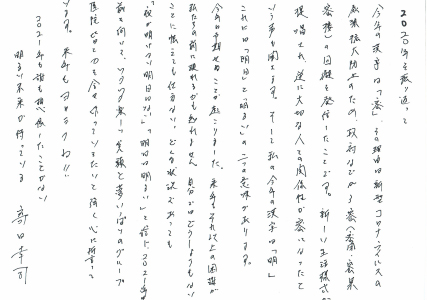 2020年を振り返って
今年の漢字は「密」。その理由は新型コロナウィルスの
感染拡大防止のため、政府などが3密（密閉・密集・
密接）の回避を発信したことです。新しい生活様式が
提唱され、逆に大切な人との関係性が密になったと
いう声も聞きます。そして私の今年の漢字は「明」
これには「明日」と「明るい」の二つの意味があります。
今年は予想せぬことが起こりました。来年もそれ以上の困難が
私たちの前に現れるかも知れません。自分ではどうしようもない
ことに怯えても仕方ない。どんな状況であっても
「夜が明けない明日はない」「明日は明るい」と信じ2021年も
前を向いて、ワクワク楽しく笑顔と夢いっぱいのグループ
を全力で
います。来年もヨロシクね!!
2021年も誰も想像したことがない
明るい未来が待っている